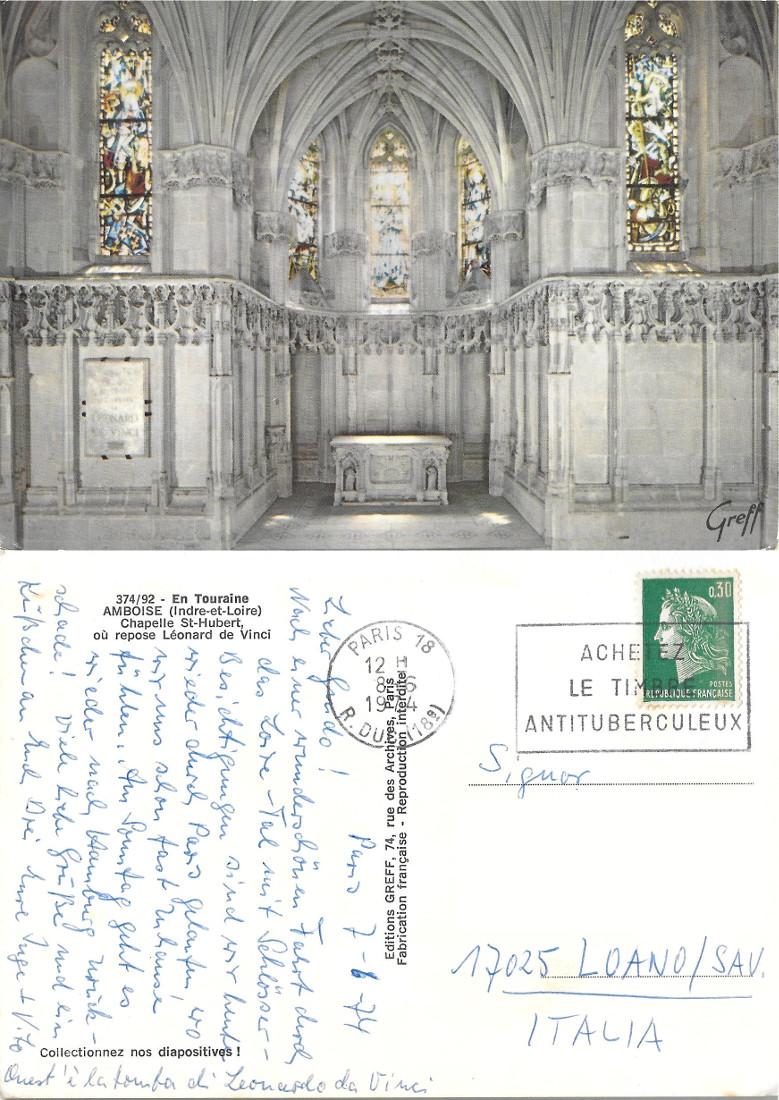 LEONARD
DE VINCI
Greff
374/92 - En Touraine
AMBOISE (Indre-et-Loire)
Chapelle St-Hubert,
où repose Léonard de Vinci
PARIS 18
12 H
8-6
1974
R. DUC (18e)
ACHETEZ
LE TIMBRE
ANTITUBERCULEUX
0,30
POSTES
REPUBLIQUE FRANÇAISE
Editions GREFF, 74, rue des Archives, Paris
Fabrication française - Reproduction interdite
Paris 7-6-74
Liebe Guido!
Nach einer wunderschönen Fahrt durch
das Loire-Tal mit Schlösser-
Besichtigungen sind wir heute
wieder durch Paris gelaufen, wo
wir uns schon fast zuhause
fühlen. Am Sonntag geht es
wieder nach Hamburg zurück -
schade! Viele liebe Grüße und ein
Küßchen an Euch Drei Eure Inge + Vito
Quest'è la tomba di Leonardo da Vinci
Collectionnez nos diapositives !
Signor
17025 LOANO/SAV.
ITALIA